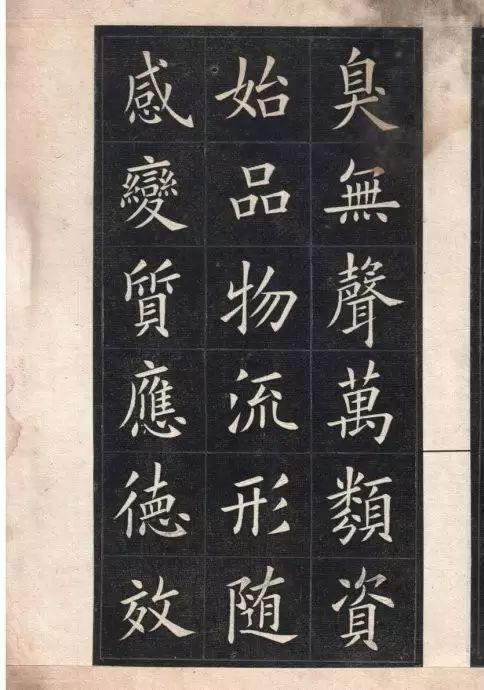 臭無聲萬類資
始品物流形随
感變質應徳效